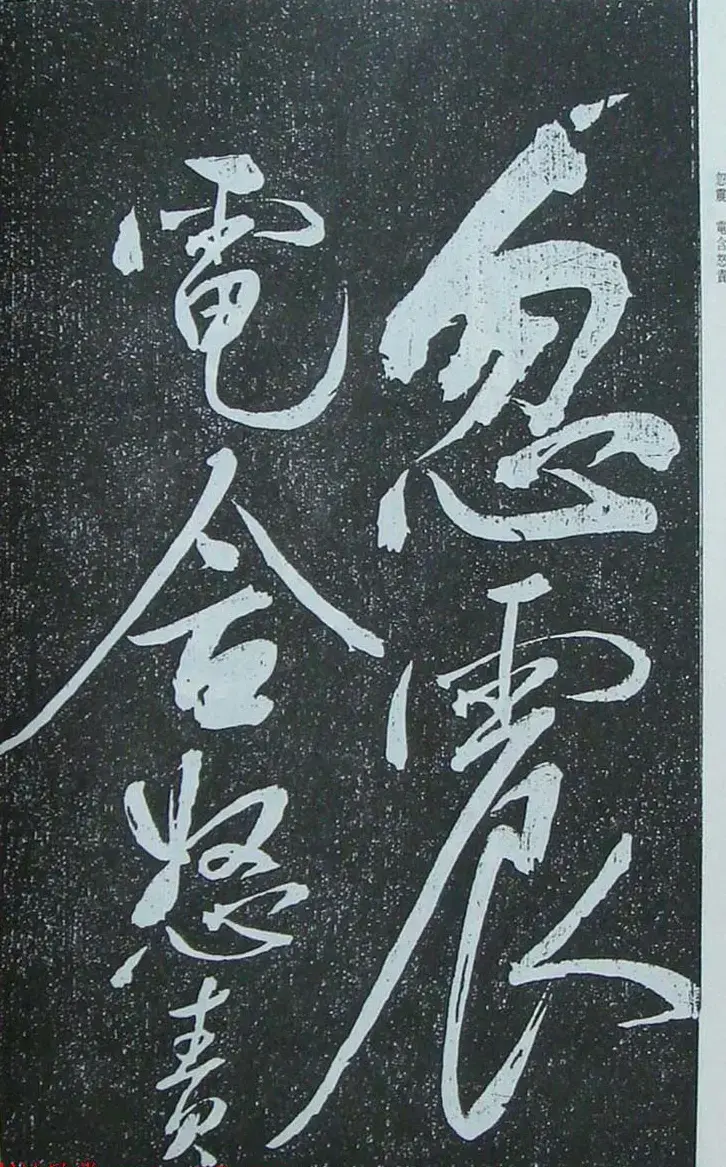 忽震
電合怒責
忽震 電合怒責